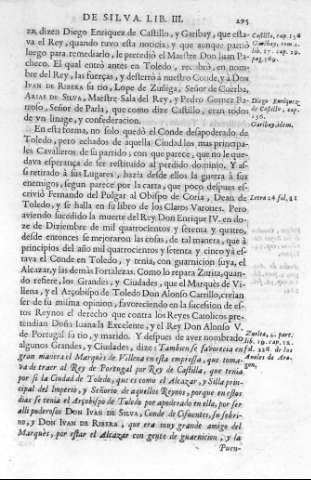 DE SILVA. LIB. III. 295
za, dizen Diego Enriquez de Castillo, y Garibay, que esta-
va el Rey, quando tuvo esta noticia; y que aunque partiò
luego para remediarlo, le precediò el Maestre Don Iuan Pa-
checo. El qual entrò antes en Toledo, recibiò, en nom-
bre del Rey, las fuerças, y desterrò a nuestro Conde, y à DON
IVAN DE RIBERA su tio, Lope de Zuñiga, Señor de Cuerba,
ARIAS DE SILVA, Maestre Sala del Rey, y Pedro Gomez Ba-
rroso, Señor de Parla, que como dize Castillo, eran todos
de vn linage, y confederacion.
En esta forma, no solo quedò el Conde desapoderado de
Toledo, pero echados de aquella Ciudad los mas principa-
les Cavalleros de su partido, con que parece, que no le que-
dava esperança de ser restituido al perdido dominio. Y as-
si retirado à sus Lugares, hazia desde ellos la guerra à sus
enemigos, segun parece por la carta, que poco despues es-
criviò Fernando del Pulgar al Obispo de Coria, Dean de
Toledo, y se halla en su libro de los Claros Varones. Pero
aviendo sucedido la muerte del Rey Don Enrique IV. en do-
ze de Diziembre de mil quatrocientos y setenta y quatro,
desde entonces se mejoraron las cosas, de tal manera, que à
principios del año mil quatrocientos y setenta y cinco yà es-
tava el Conde en Toledo, y tenia, con guarnicion suya, el
Alcazar, y las demàs Fortalezas. Como lo repara Zurita, quan-
do refiere, los Grandes, y Ciudades, que el Marquès de Vi-
llena, y el Arçobispo de Toledo Don Alonso Carrillo, creìan
ser de su misma opinion, favoreciendo en la sucession de es-
tos Reynos el derecho que contra los Reyes Catolicos pre-
tendian Doña Iuana la Excelente, y el Rey Don Alonso V.
de Portugal su tio, y marido. Y despues de aver nombrado
algunos Grandes, y Ciudades, dize: Tambien se favorecia en
gran manera el Marquès de Villena en esta empresa, que toma-
va de traer al Rey de Portugal por Rey de Castilla, que tenia
por si la Ciudad de Toledo, que es como el Alcazar, y Silla prin-
cipal del Imperio, y Señorio de aquellos Reynos, porque en estos
dias se tenia el Arçobispo de Toledo por apoderado en ella, por ser
alli poderoso DON IVAN DE SILVA, Conde de Cifuentes, su sobri-
no, y DON IVAN DE RIBERA, que era muy grande amigo del
Marquès, por estar el Alcazar con gente de guarnicion, y la
Puen-
Castillo, cap. 156
Garibay, tom. 2.
lib. 17. cap. 19.
pag. 189.
Diego Enriquez
de Castillo, cap.
156.
Garibay, idem.
Letra 24 fol. 51
Zurita, 4. part.
lib. 19. cap. 12.
fol. 228 de los
Anales de Ara-
gon.